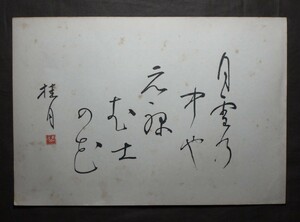 月雪乃
中や
元禄
武士
の花
桂月